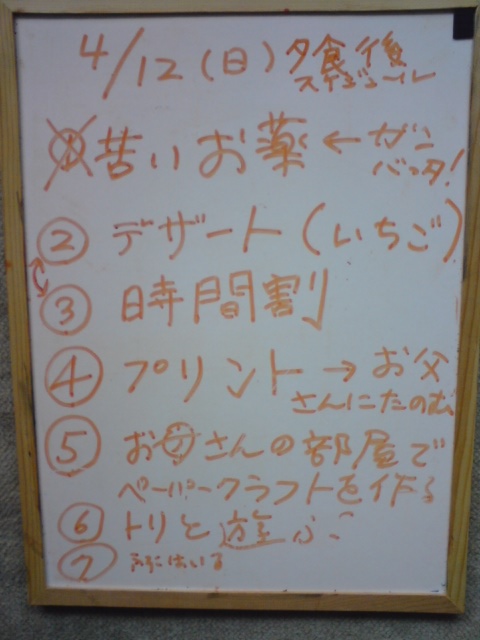 4/12(日)夕食後
スケジュール
① 苦いお薬 ← ガン
バッタ!
② デザート(いちご)
③ 時間割
④ プリント → お父
さんにたのむ
⑤ お母さんの部屋で
ペーパークラフトを作る
⑥ トリと遊ぶ
⑦ ふろにはいる